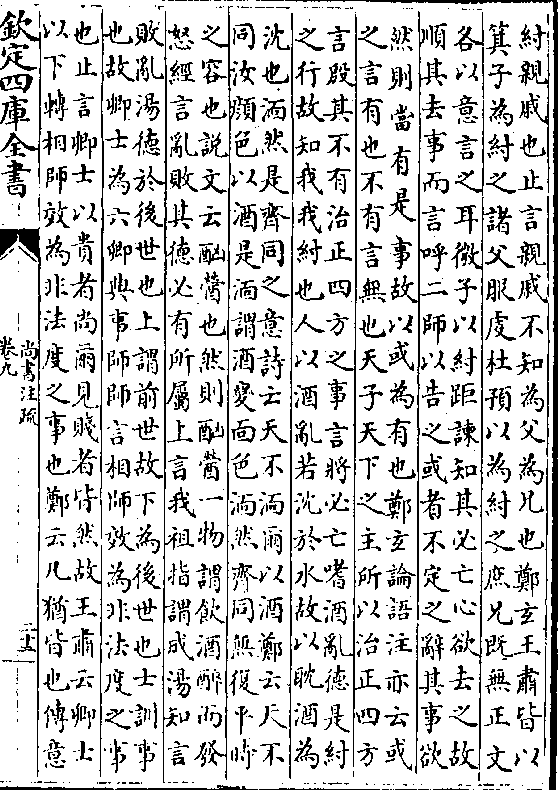 紂親戚也止言親戚不知為父為兄也鄭玄王肅皆以
箕子為紂之諸父服虔杜預以為紂之庶兄既無正文
各以意言之耳微子以紂距諫知其必亡心欲去之故
順其去事而言呼二師以告之或者不定之辭其事欲
然則當有是事故以或為有也鄭玄論語注亦云或
之言有也不有言無也天子天下之主所以治正四方
言殷其不有治正四方之事言將必亡嗜酒亂德是紂
之行故知我我紂也人以酒亂若沈於水故以耽酒為
沈也湎然是齊同之意詩云天不湎爾以酒鄭云天不
同汝顔色以酒是湎謂酒變面色湎然齊同無復平時
之容也說文云酗醟也然則酗醟一物謂飲酒醉而發
怒經言亂敗其德必有所屬上言我祖指謂成湯知言
敗亂湯德於後世也上謂前世故下為後世也士訓事
也故卿士為六卿典事師師言相師效為非法度之事
也止言卿士以貴者尚爾見賤者皆然故王肅云卿士
以下轉相師效為非法度之事也鄭云凡猶皆也傳意
欽定四庫全書
尚書注疏
卷九
二十五